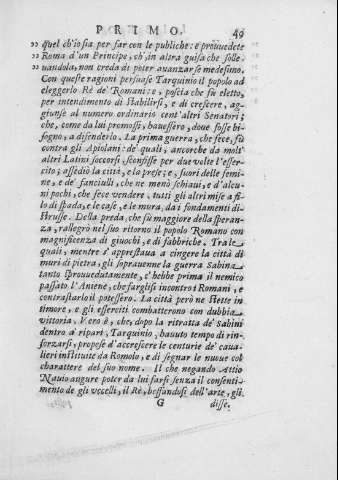 PRIMO. 49
" quel ch'io sia per far con le publiche: e prouuedete
" Roma d'un Principe, ch'in altra guisa che solle-
" uandola, non creda di poter auanzar se medesimo.
Con queste ragioni persuase Tarquinio il popolo ad
eleggerlo Rè de' Romani: e, poscia che fù eletto,
per intendimento di stabilirsi, e di crescere, ag-
giunse al numero ordinario cent'altri Senatori;
che, come da lui promossi, hauessero, doue fosse bi-
sogno, a difenderlo. La prima guerra, che fece, fù
contro gli Apiolani: de' quali, ancorche da molt'
altri Latini soccorsi, sconfisse per due volte l'esser-
cito; assediò la città, e la prese; e, fuori delle femi-
ne, e de' fanciulli, che ne menò schiaui, e d'alcu-
ni pochi, che fece vendere, tutti gli altri mise a fi-
lo di spada, e le case, e le mura, da i fondamenti di-
strusse. Della preda, che fù maggiore della speran-
za, rallegrò nel suo ritorno il popolo Romano con
magnificenza di giuochi, e di fabbriche. Tra le
quali, mentre s'apprestaua a cingere la città di
muri di pietra, gli soprauenne la guerra Sabina
tanto sprouuedutamente, c'hebbe prima il nemico
passato l'Aniene, che fargli si incontro i Romani, e
contrastarlo il potessero. La città però ne stette in
timore, e gli esserciti combatterono con dubbia
vittoria. Vero è, che, dopo la ritratta de' Sabini
dentro a' ripari, Tarquinio, hauuto tempo di rin-
forzarsi, propose d'accrescere le centurie de' caua-
lieri instituite da Romolo, e di segnar le nuoue col
charattere del suo nome. Il che negando Attio
Nauio augure poter da lui farsi senza il consenti-
mento de gli vccelli, il Rè, beffandosi dell'arte, gli
G disse,